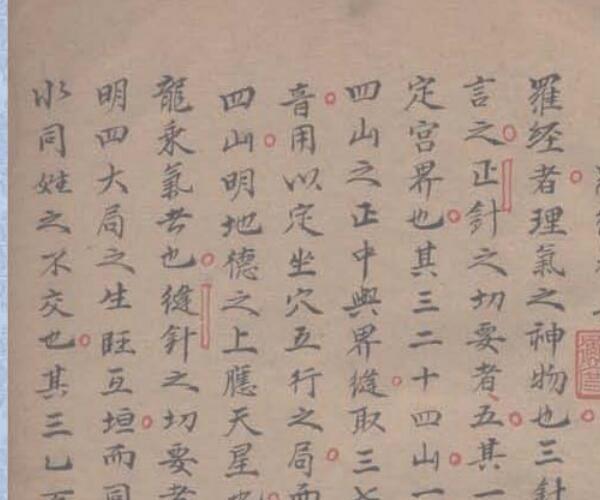 羅经者理氣之神物也三針
言之正針之切要者五其一
定宫界也其三二十四山一
四山之正中與界縫取三七
音用以定坐穴五行之局而
四山明地德之上應天星也
龍乘氣者也縫針之切要者
明四大局之生旺互垣而同
水同姓之不交也其三乚